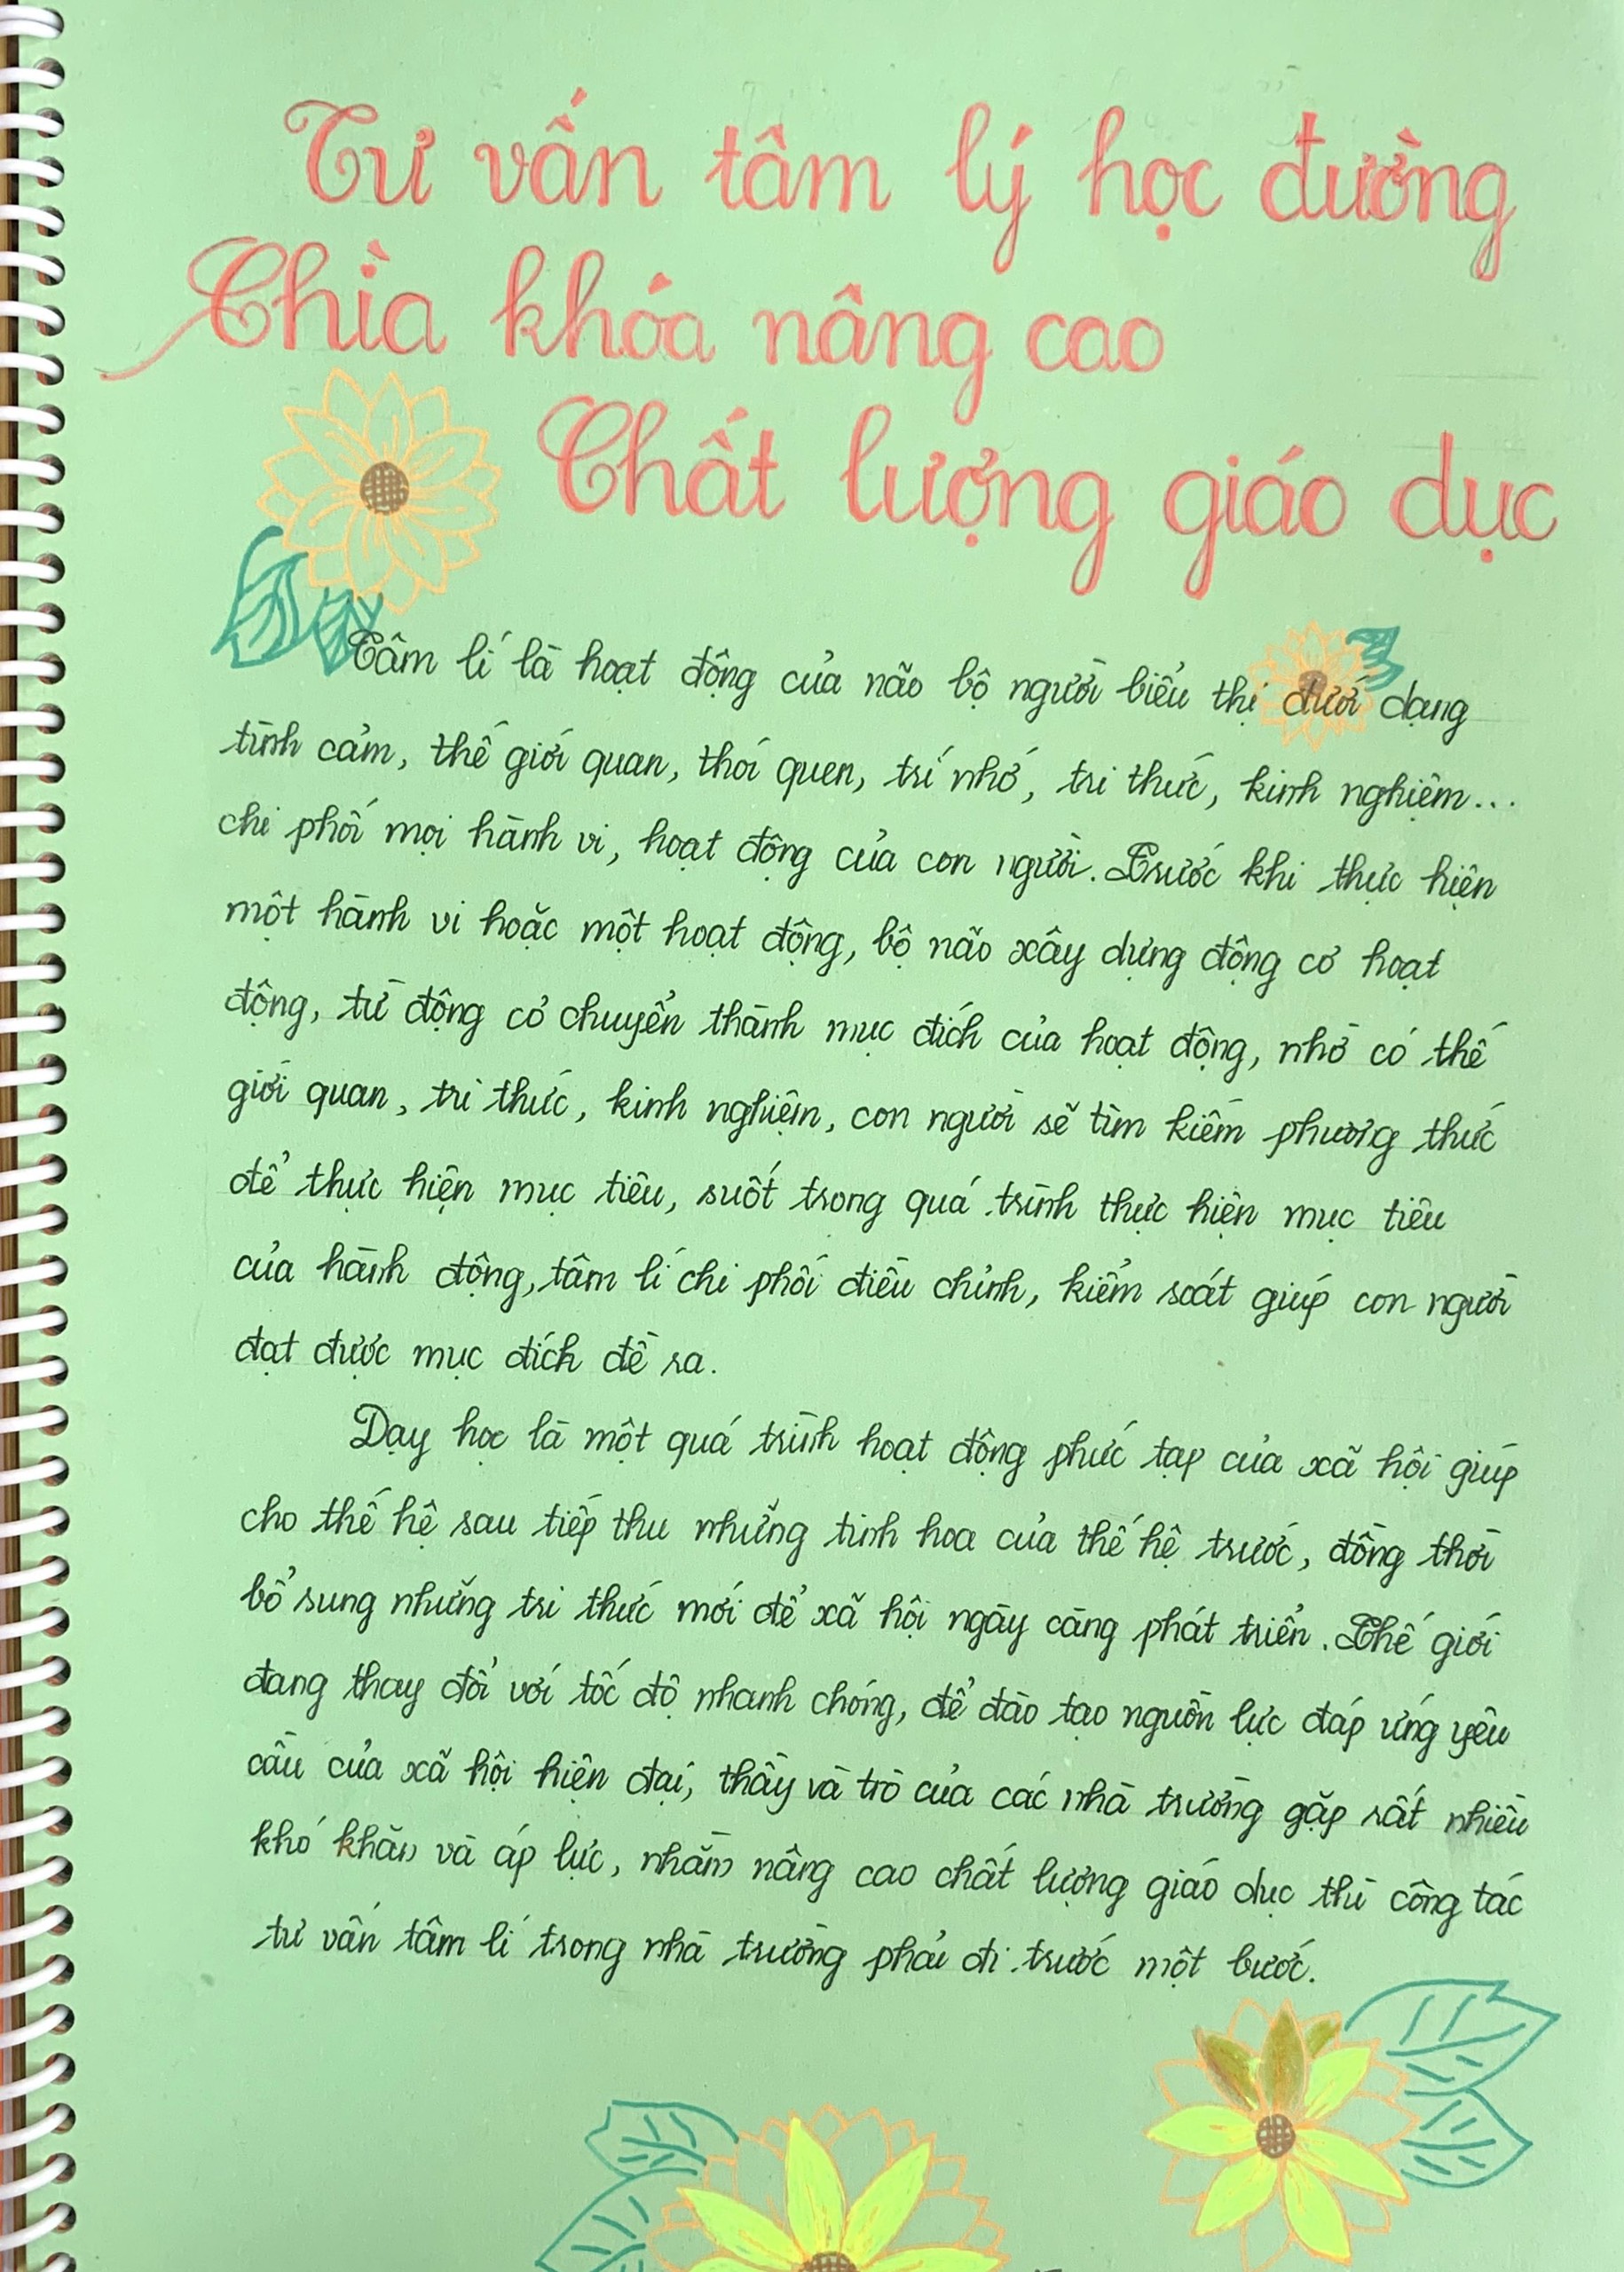 Tư vấn tâm lý học đường
Chìa khóa nâng cao
Chất lượng giáo dục
Tâm lí là hoạt động của não bộ người biểu thị dưới dạng
tình cảm, thế giới quan, thói quen, trí nhớ, tri thức, kinh nghiệm...
chi phối mọi hành vi, hoạt động của con người. Trước khi thực hiện
một hành vi hoặc một hoạt động, bộ não xây dựng động cơ hoạt
động, từ động cơ chuyển thành mục đích của hoạt động, nhờ có thế
giới quan, tri thức, kinh nghiệm, con người sẽ tìm kiếm phương thức
để thực hiện mục tiêu, suốt trong quá trình thực hiện mục tiêu
của hành động, tâm lí chi phối điều chỉnh, kiểm soát giúp con người
đạt được mục đích đề ra.
Dạy học là một quá trình hoạt động phức tạp của xã hội giúp
cho thế hệ sau tiếp thu những tinh hoa của thế hệ trước, đồng thời
bổ sung những tri thức mới để xã hội ngày càng phát triển. Thế giới
đang thay đổi với tốc độ nhanh chóng, để đào tạo nguồn lực đáp ứng yêu
cầu của xã hội hiện đại, thầy và trò của các nhà trường gặp rất nhiều
khó khăn và áp lực, nhằm nâng cao chất lượng giáo dục thì công tác
tư vấn tâm lí trong nhà trường phải đi trước một bước.